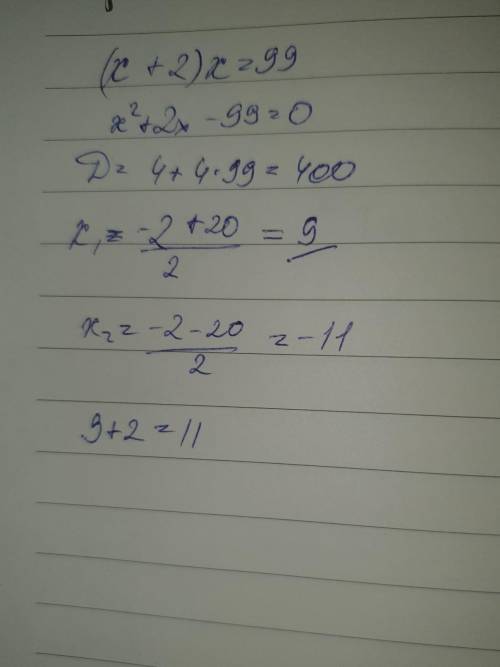 (x + 2)x = 99
x² + 2x - 99 = 0
D = 4 + 4 · 99 = 400
x₁ = (-2 + 20)/2 = 9
x₂ = (-2 - 20)/2 = -11
9 + 2 = 11